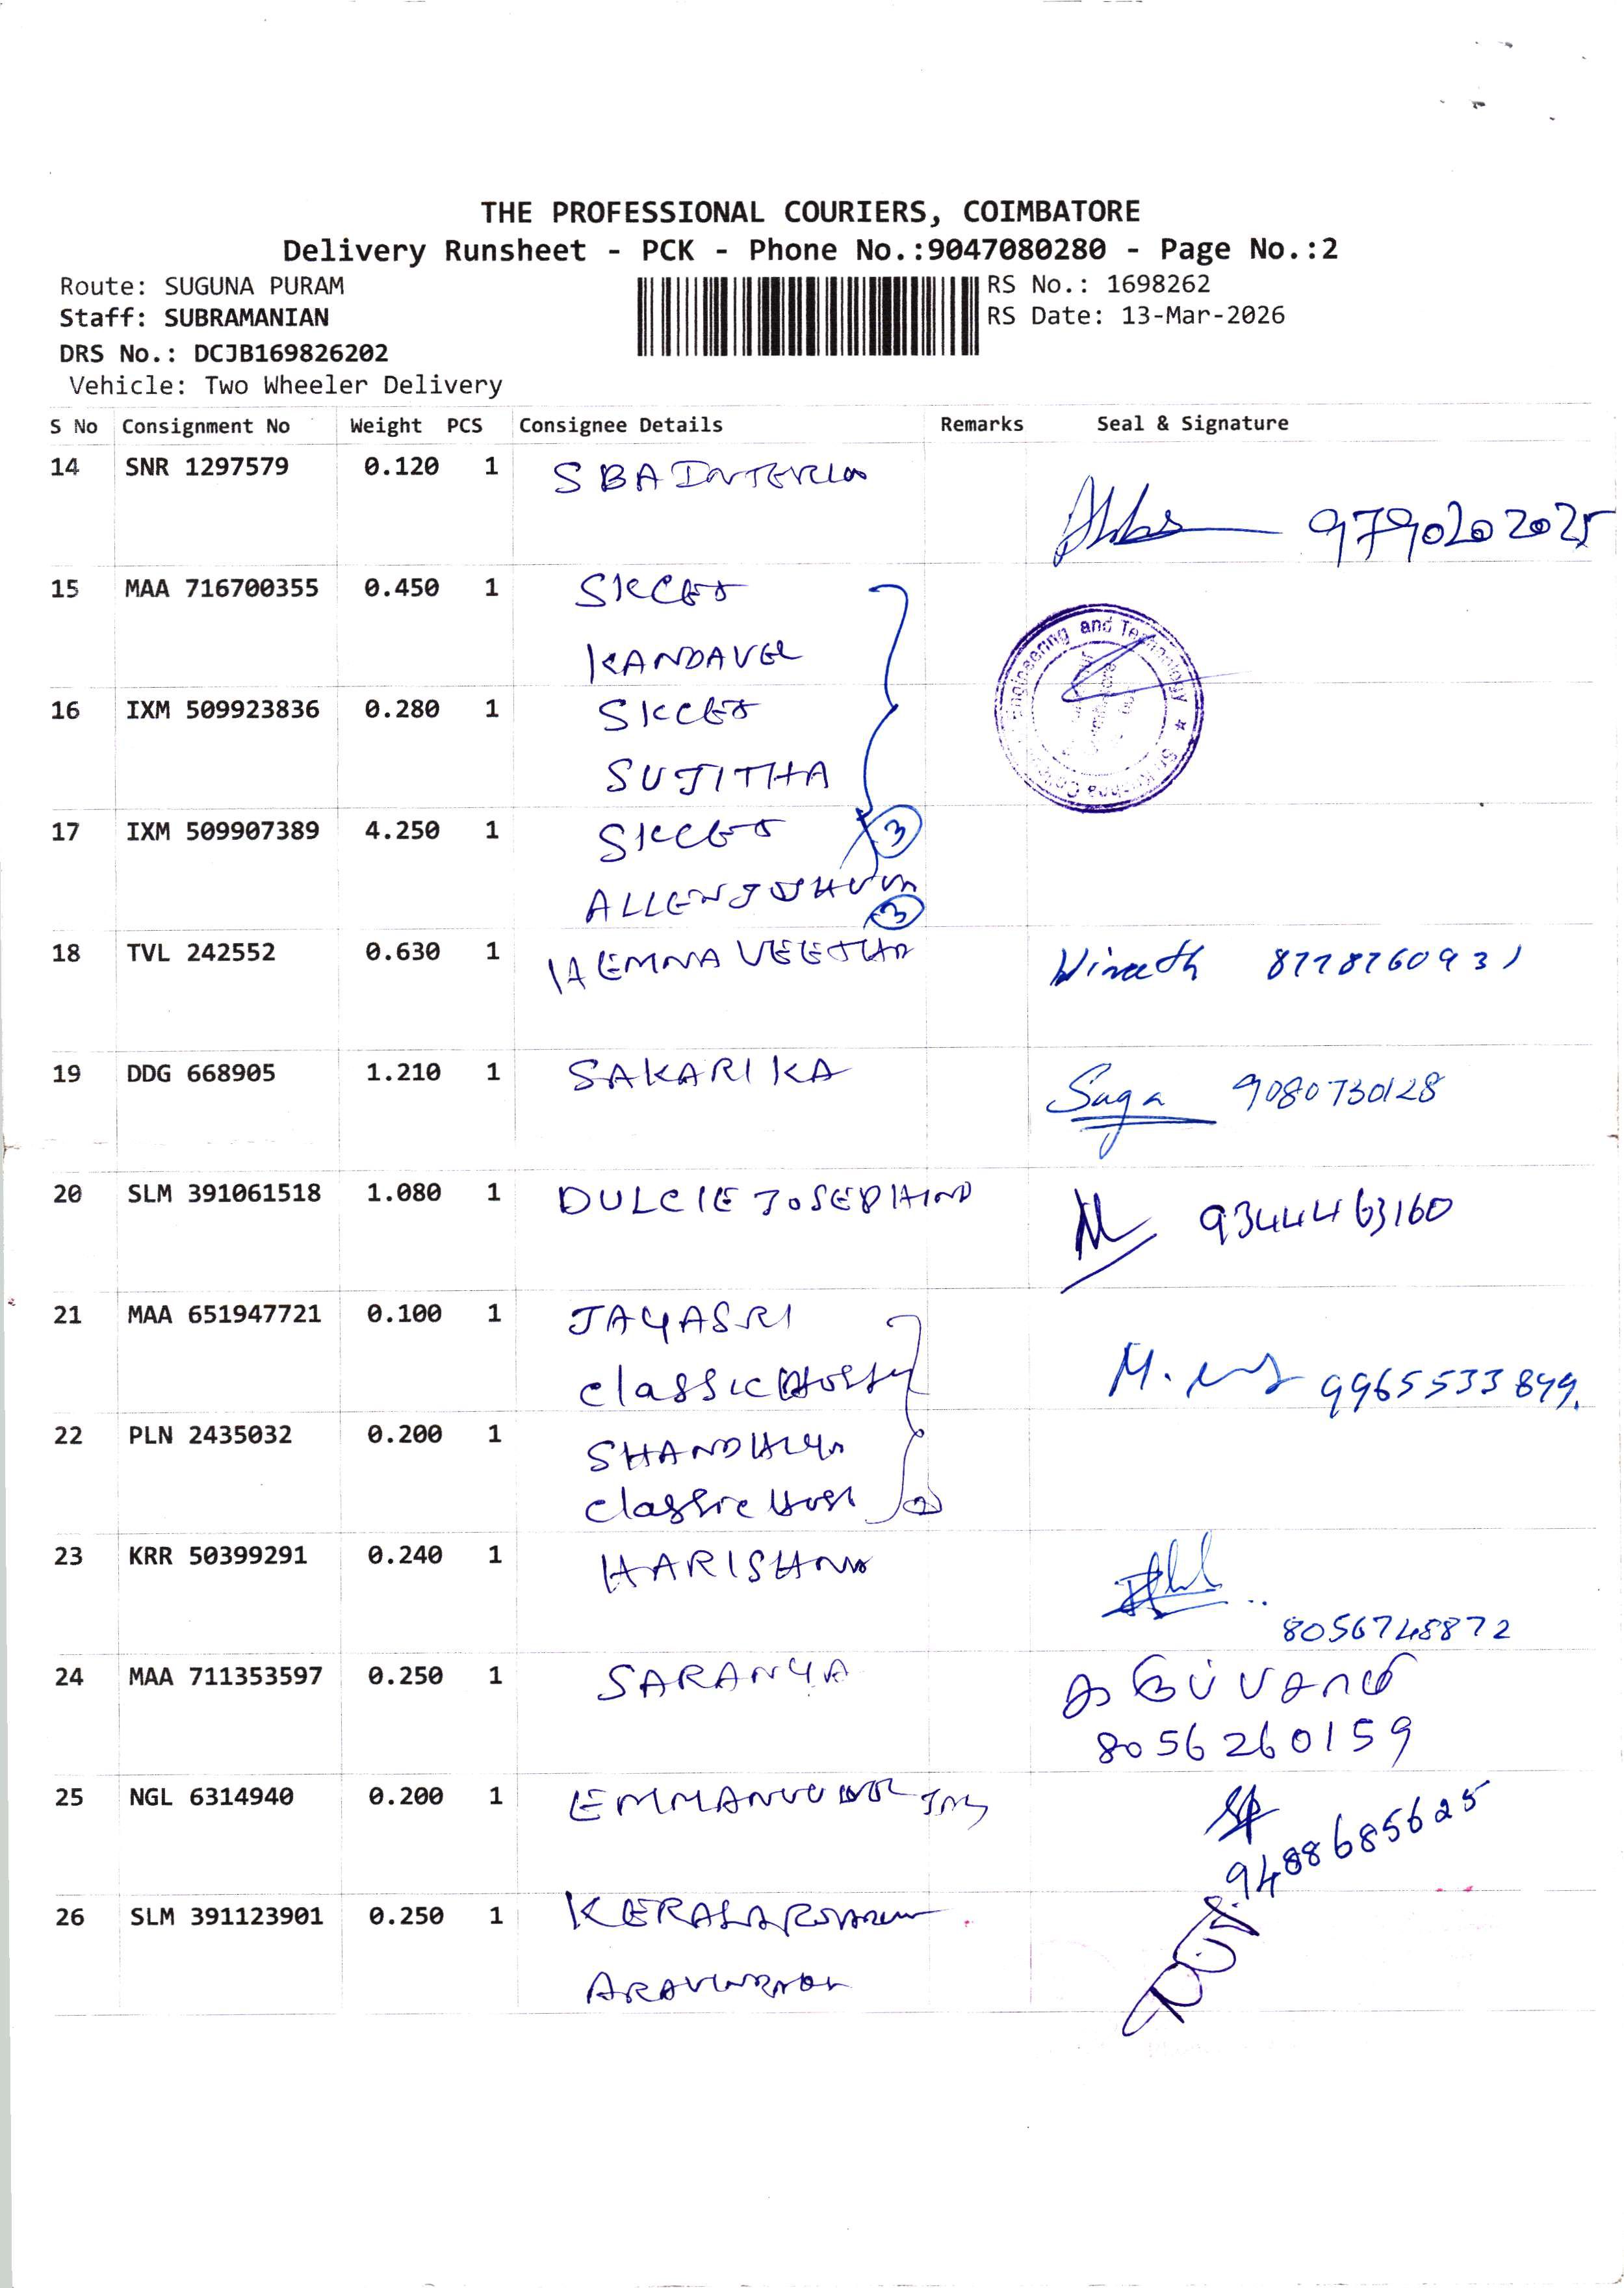 THE PROFESSIONAL COURIERS, COIMBATORE
Delivery Runsheet - PCK - Phone No.:9047080280 - Page No.:2
Route: SUGUNA PURAM
RS No.: 1698262
Staff: SUBRAMANIAN
RS Date: 13-Mar-2026
DRS No.: DCJB169826202
Vehicle: Two Wheeler Delivery
S No Consignment No Weight PCS Consignee Details Remarks Seal & Signature
14 SNR 1297579 0.120 1 SBA
9790202025
15 MAA 716700355 0.450 1 SKCET
KANDAVEL
Engineering and Technology
16 IXM 509923836 0.280 1 SKCET
SUJITHA
17 IXM 509907389 4.250 1 SKCET 3
ALLEN
3
18 TVL 242552 0.630 1 HEMMA
19 DDG 668905 1.210 1 SAKARIKA
Suga 9080730128
20 SLM 391061518 1.080 1 DULCIE
9344463160
21 MAA 651947721 0.100 1 JAYASRI
classic
M. 9965533849.
22 PLN 2435032 0.200 1
classic 2
23 KRR 50399291 0.240 1
8056748872
24 MAA 711353597 0.250 1 SARANYA
8056260159
25 NGL 6314940 0.200 1
9488685625
26 SLM 391123901 0.250 1 KERALA